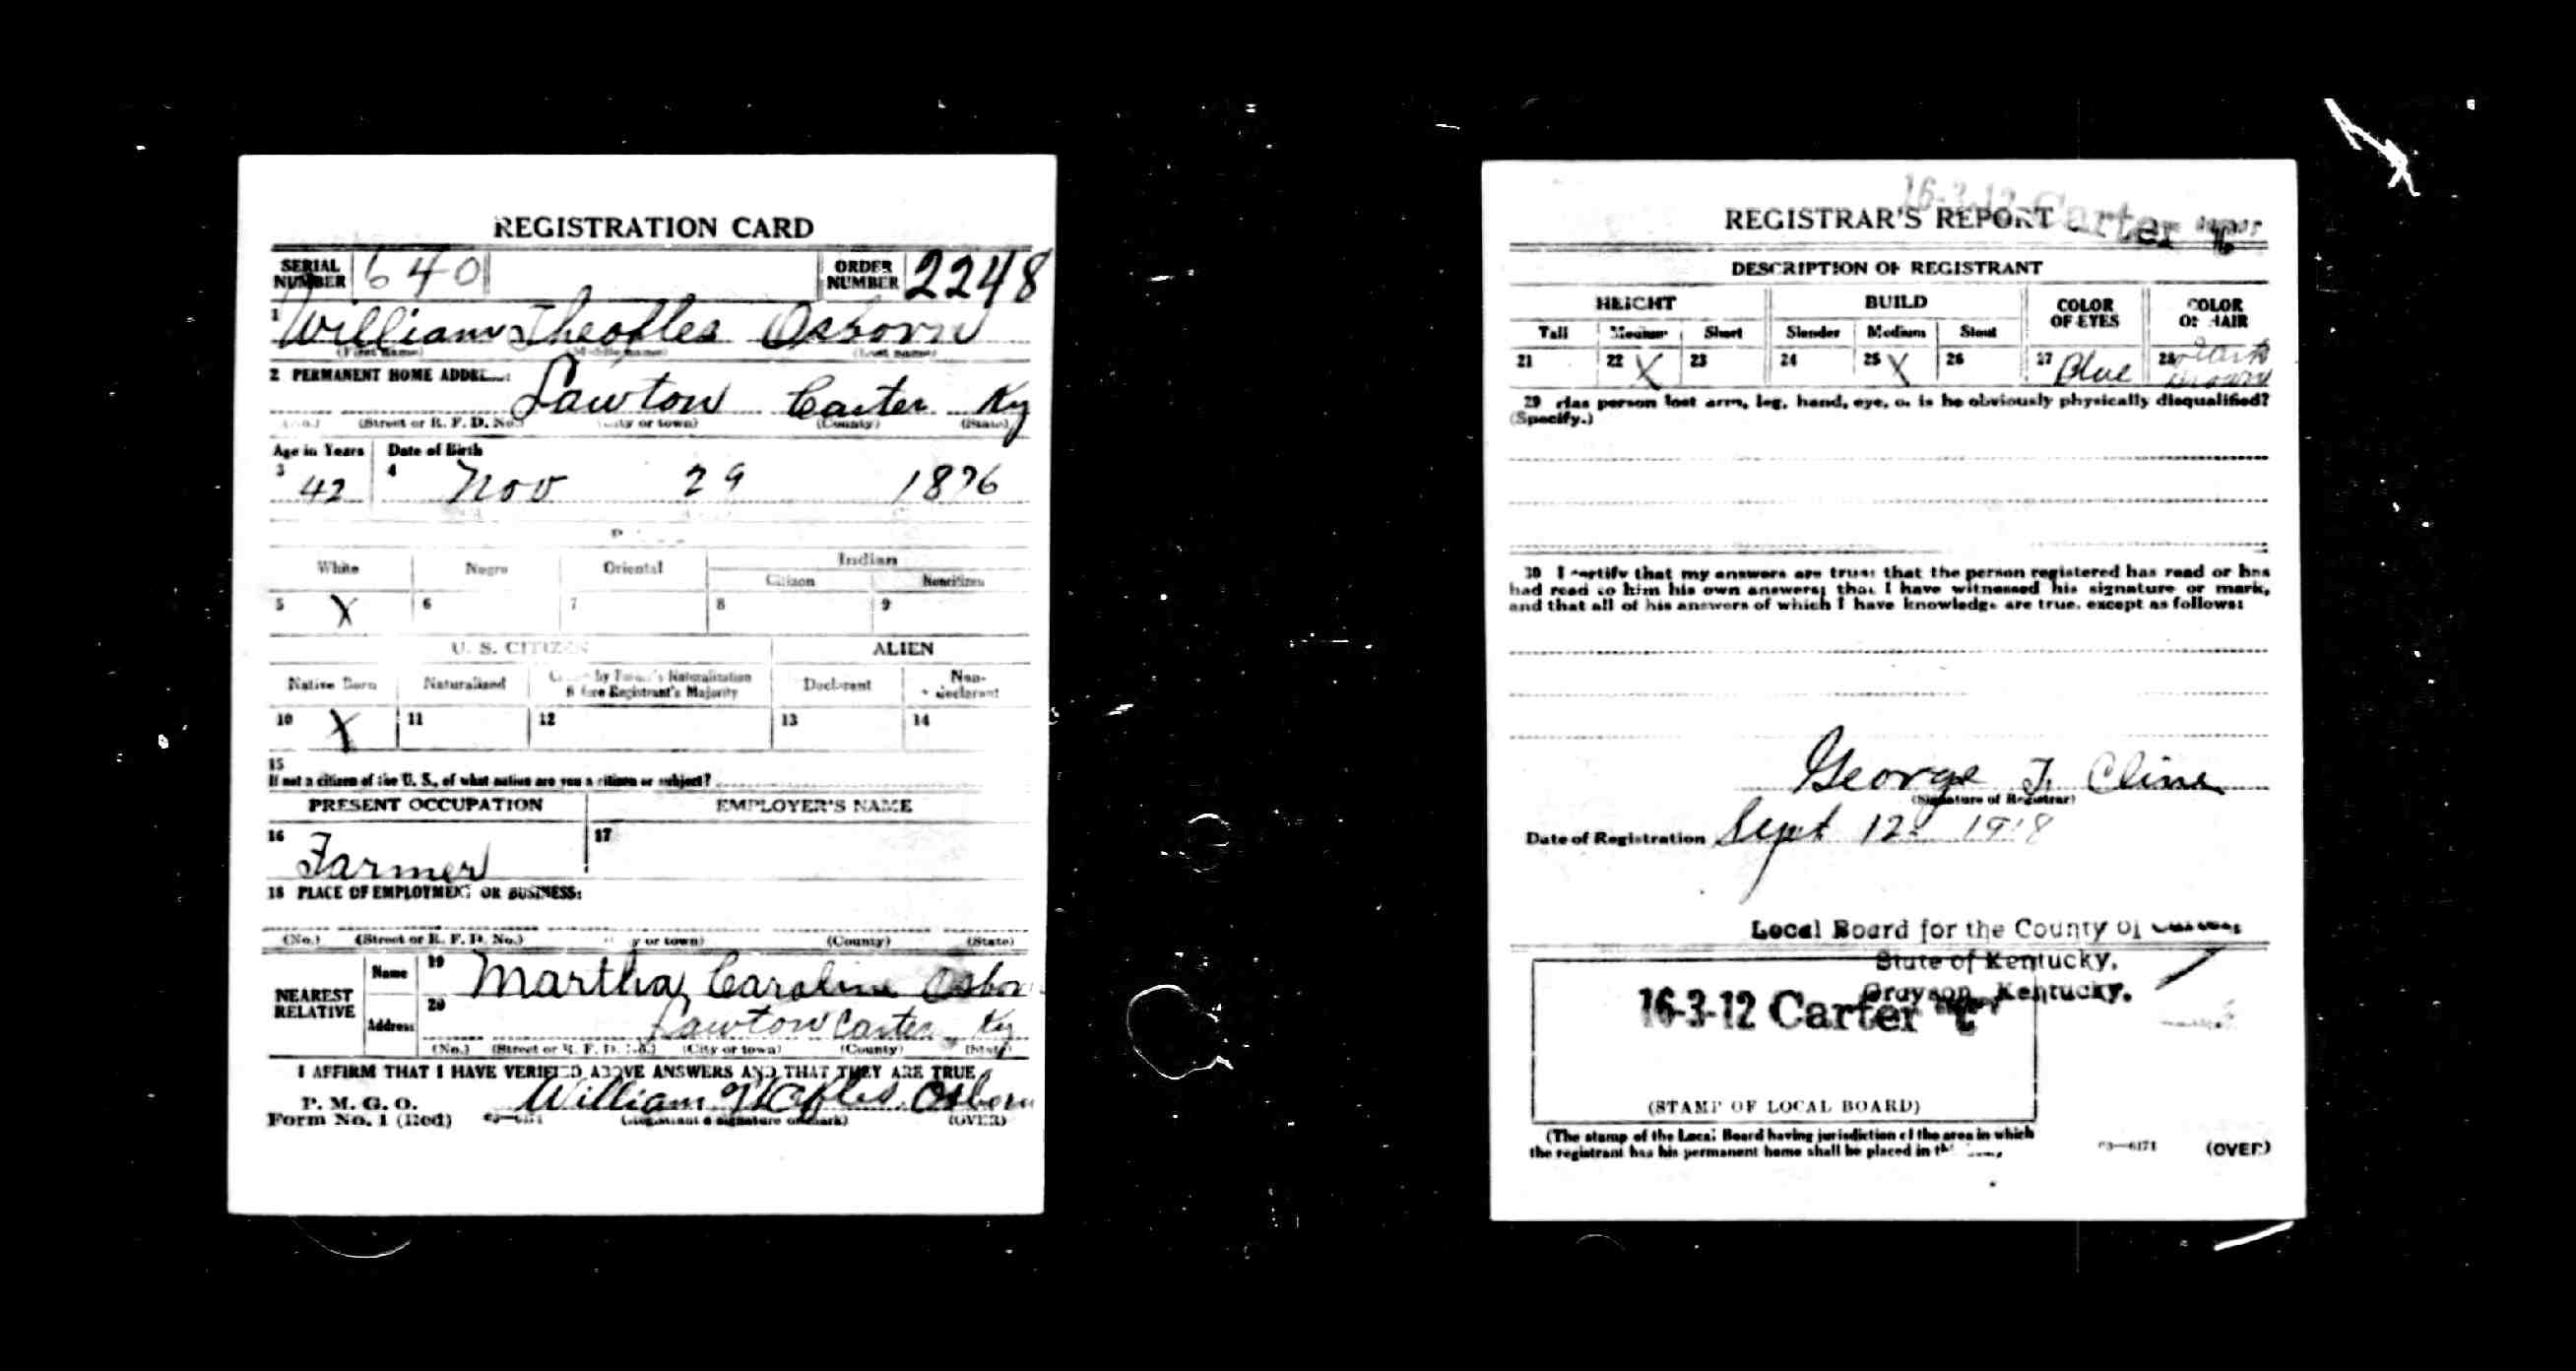 REGISTRATION CARD
SERIAL NUMBER 640 ORDER NUMBER 2248
1 William Theofles Osborn
(First name) (Middle name) (Last name)
2 PERMANENT HOME ADDRESS:
Lawton Carter Ky
(No.) (Street or R. F. D. No.) (City or town) (County) (State)
Age in Years Date of Birth
3 42 4 Nov 29 1876
Indian
White Negro Oriental Citizen Noncitizen
5 X 6 7 8 9
U. S. CITIZEN ALIEN
Native Born Naturalized Citizen by Father's Naturalization Before Registrant's Majority Declarant Non-declarant
10 X 11 12 13 14
15
If not a citizen of the U. S., of what nation are you a citizen or subject?
PRESENT OCCUPATION EMPLOYER'S NAME
16 Farmer 17
18 PLACE OF EMPLOYMENT OR BUSINESS:
(No.) (Street or R. F. D. No.) (City or town) (County) (State)
NEAREST RELATIVE
Name 19 Martha Caroline Osborn
Address 20 Lawton Carter Ky
(No.) (Street or R. F. D. No.) (City or town) (County) (State)
I AFFIRM THAT I HAVE VERIFIED ABOVE ANSWERS AND THAT THEY ARE TRUE
P. M. G. O.
Form No. 1 (Red) William Theofles Osborn
(Registrant's signature or mark) (OVER)
16-3-12 Carter
REGISTRAR'S REPORT
DESCRIPTION OF REGISTRANT
HEIGHT BUILD COLOR OF EYES COLOR OF HAIR
Tall Medium Short Slender Medium Stout
21 22 X 23 24 25 X 26 27 Blue 28 Dark Brown
29 Has person lost arm, leg, hand, eye, or is he obviously physically disqualified?
(Specify.)
30 I certify that my answers are true; that the person registered has read or has
had read to him his own answers; that I have witnessed his signature or mark,
and that all of his answers of which I have knowledge are true, except as follows:
George T. Cline
(Signature of Registrar)
Date of Registration Sept 12 1918
Local Board for the County of Carter
State of Kentucky,
Grayson, Kentucky.
16-3-12 Carter
(STAMP OF LOCAL BOARD)
(The stamp of the Local Board having jurisdiction of the area in which
the registrant has his permanent home shall be placed in this
03—6171 (OVER)